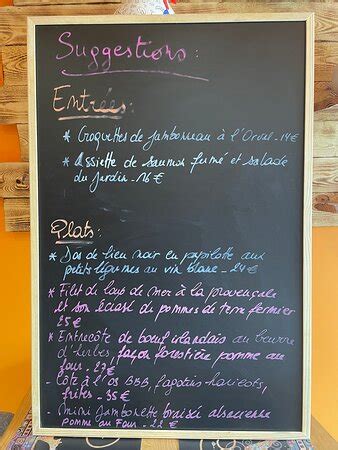 Suggestions :
Entrées :
* Croquettes de jambonneau à l'Orval - 14 €
* Assiette de saumon fumé et salade
du jardin - 16 €
Plats :
* Dos de lieu noir en papillote aux
petits légumes au vin blanc - 24 €
* Filet de loup de mer à la provençale
et son écrasé de pommes de terre fermier
25 €
* Entrecôte de boeuf irlandais au beurre
d'herbes, façon forestière pomme au
four - 27 €
- Côte à l'os BBB, fagotins haricots,
frites - 35 €
- mini jambonette braisée alsacienne
pomme au four - 22 €